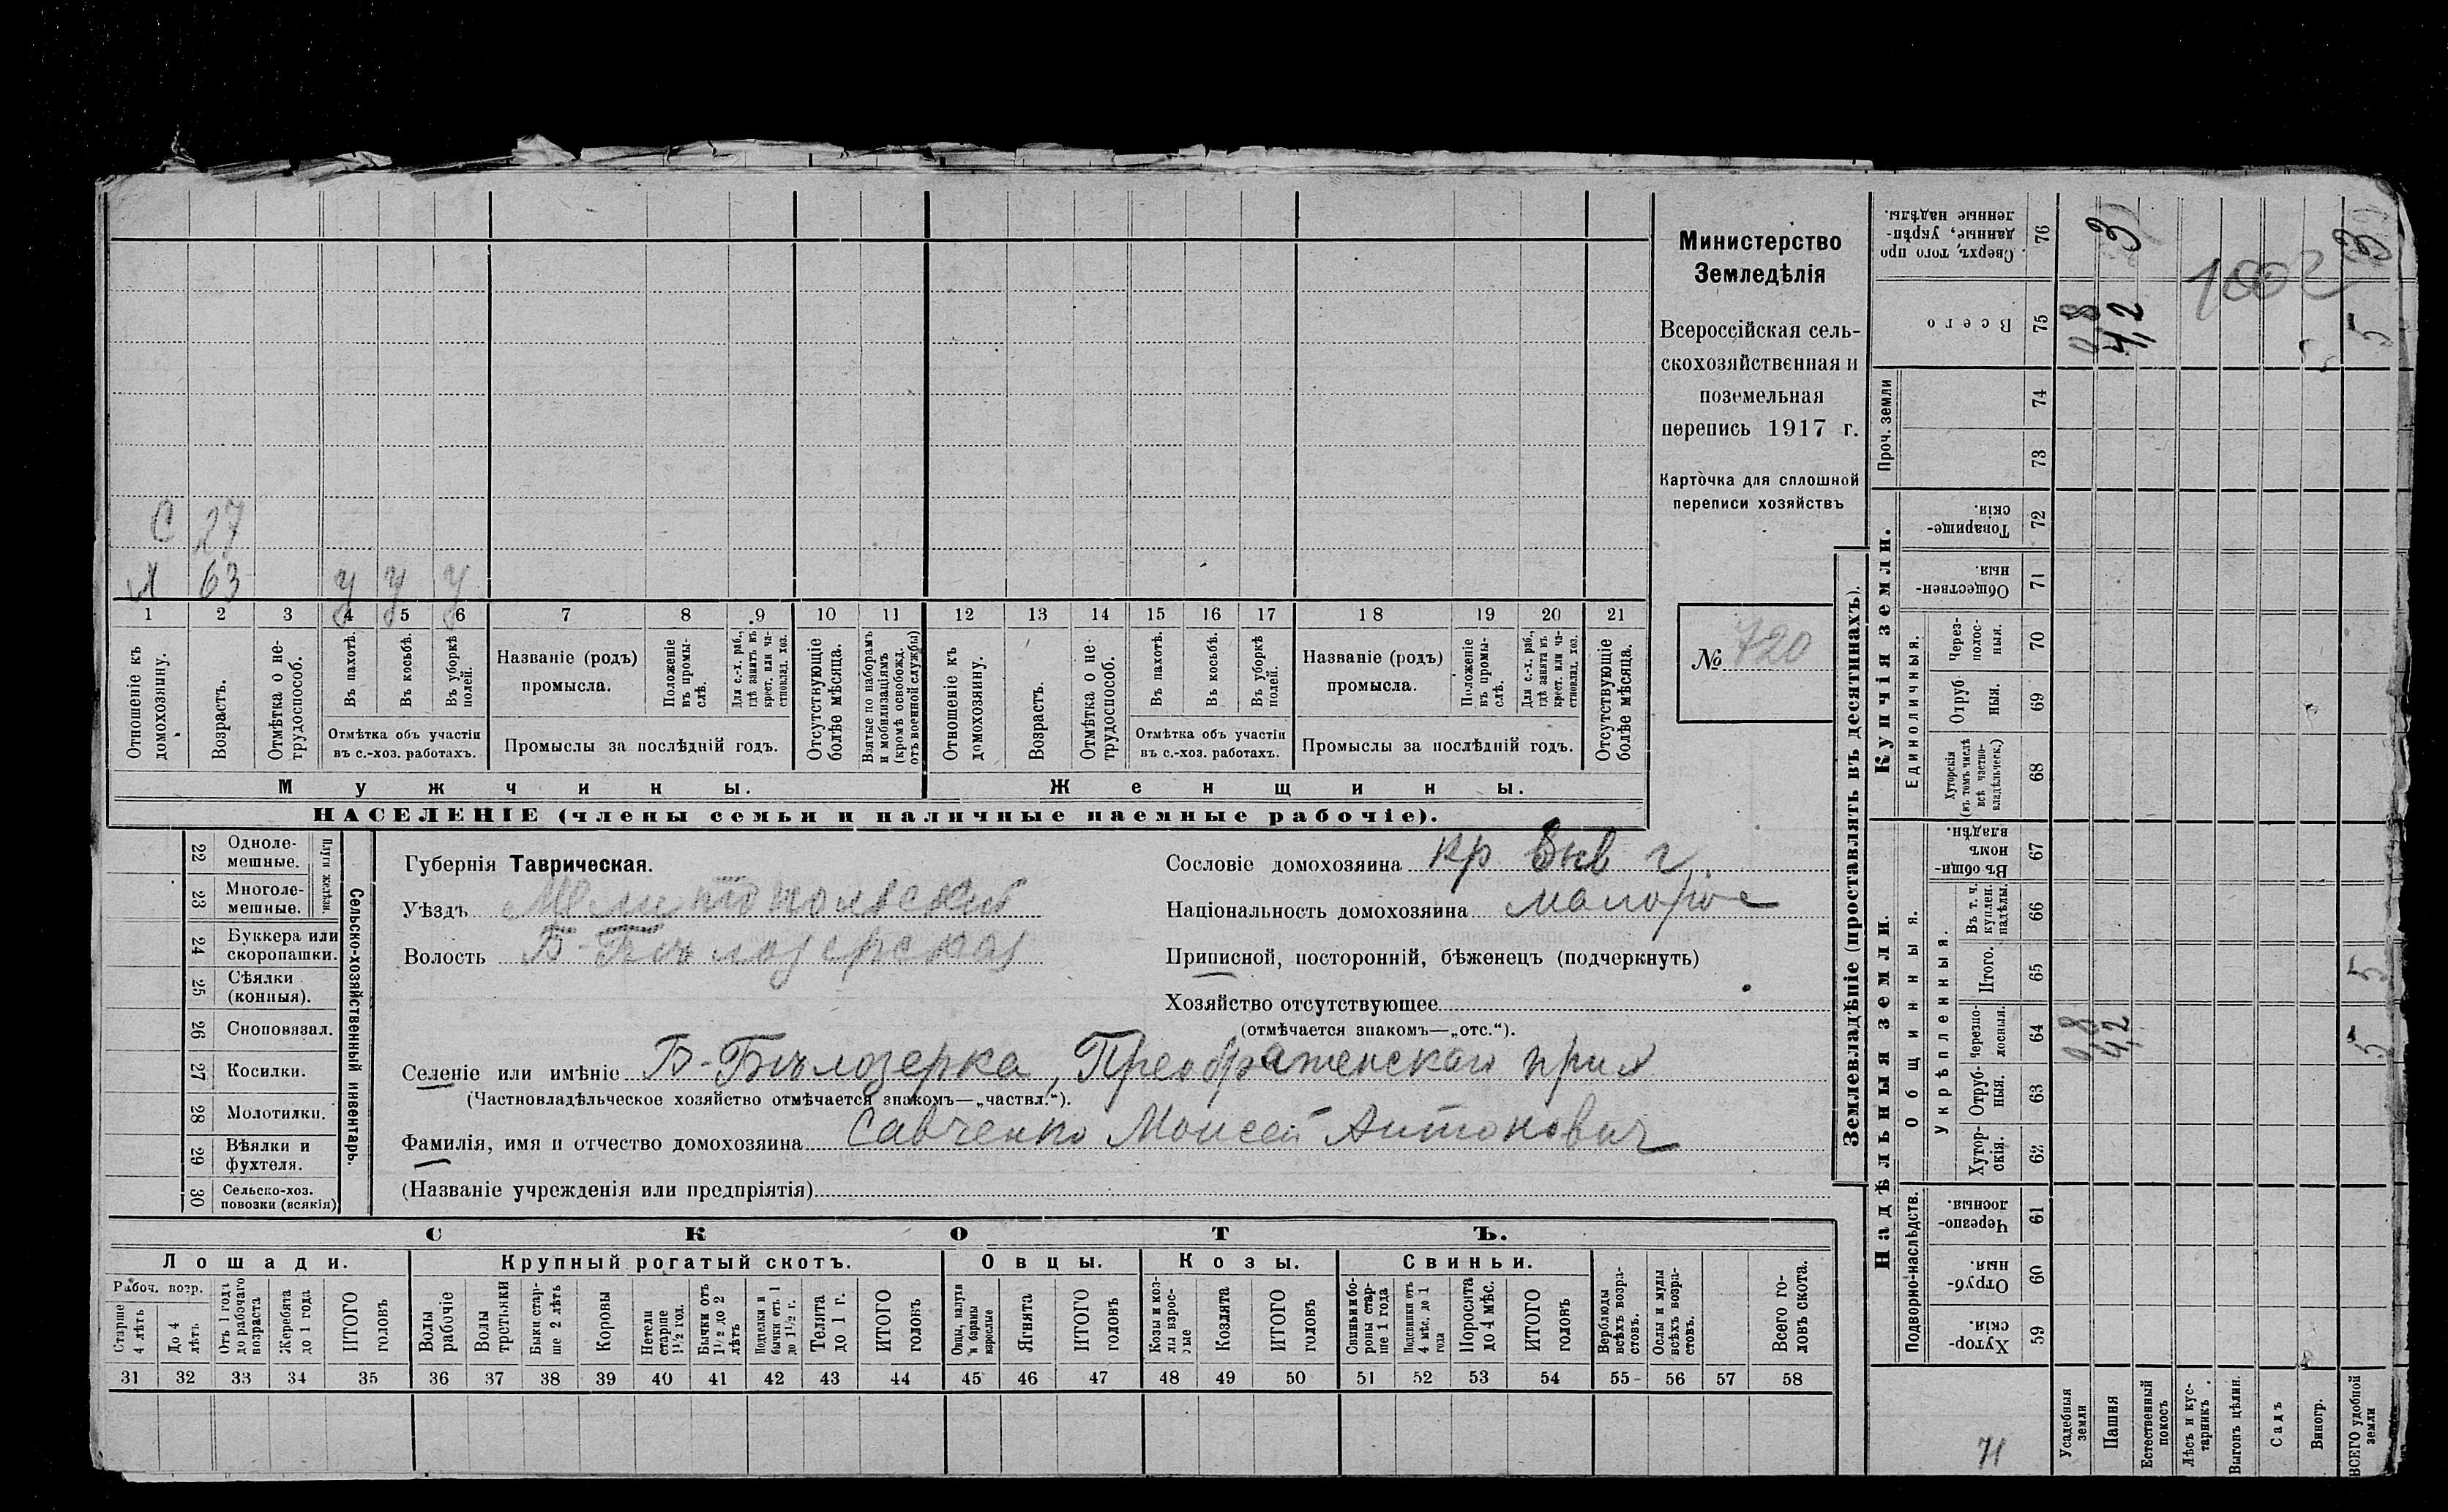 С 27
Х 63 у у у
1 2 3 4 5 6 7 8 9 10 11 12 13 14 15 16 17 18 19 20 21
Отношеніе къ домохозяину.
Возрастъ.
Отмѣтка о не-трудоспособ.
Въ пахотѣ.
Въ косьбѣ.
Въ уборкѣ полей.
Отмѣтка объ участіи
въ с.-хоз. работахъ.
Названіе (родъ)
промысла.
Положеніе въ промы-слѣ.
Для с.-х. раб., гдѣ занятъ въ крест. или ча-стновлад. хоз.
Промыслы за послѣдній годъ.
Отсутствующіе болѣе мѣсяца.
Взятые по наборамъ и мобилизаціямъ (кромѣ освобожд. отъ военной службы)
Отношеніе къ домохозяину.
Возрастъ.
Отмѣтка о не-трудоспособ.
Въ пахотѣ.
Въ косьбѣ.
Въ уборкѣ полей.
Отмѣтка объ участіи
въ с.-хоз. работахъ.
Названіе (родъ)
промысла.
Положеніе въ промы-слѣ.
Для с.-х. раб., гдѣ занята въ крест. или ча-стновлад. хоз.
Промыслы за послѣдній годъ.
Отсутствующіе болѣе мѣсяца.
Мужчины.
Женщины.
НАСЕЛЕНІЕ (члены семьи и наличные наемные рабочіе).
Министерство
Земледѣлія
Всероссійская сель-
скохозяйственная и
поземельная
перепись 1917 г.
Карточка для сплошной
переписи хозяйствъ
№ 720
22 Одноле-мешные.
23 Многоле-мешные.
Плуги желѣзн.
24 Буккера или скоропашки.
25 Сѣялки (конныя).
26 Сноповязал.
27 Косилки.
28 Молотилки.
29 Вѣялки и фухтеля.
30 Сельско-хоз. повозки (всякія)
Сельско-хозяйственный инвентарь.
Губернія Таврическая.
Уѣздъ Мелитопольский
Волость Б-Бѣлозерская
Сословіе домохозяина кр
Національность домохозяина малорос
Приписной, посторонній, бѣженецъ (подчеркнуть)
Хозяйство отсутствующее
(отмѣчается знакомъ—„отс.“).
Селеніе или имѣніе Б-Бѣлозерка, Преображенскаго прих
(Частновладѣльческое хозяйство отмѣчается знакомъ—„частвл.“).
Фамилія, имя и отчество домохозяина Савченко Моисей Антонович
(Названіе учрежденія или предпріятія)
СКОТЪ.
Лошади.
Крупный рогатый скотъ.
Овцы.
Козы.
Свиньи.
Рабоч. возр.
Старше 4 лѣтъ
До 4 лѣтъ
Отъ 1 года до рабочаго возраста
Жеребята до 1 года
ИТОГО головъ
Волы рабочіе
Волы третьяки
Быки стар-ше 2 лѣтъ
Коровы
Нетели старше 1½ год.
Бычки отъ 1½ до 2 лѣтъ
Подтелки и бычки отъ 1 до 1½ г.
Телята до 1 г.
ИТОГО головъ
Овцы, валухи и бараны взрослые
Ягнята
ИТОГО головъ
Козы и коз-лы взрос-лые
Козлята
ИТОГО головъ
Свиньи и бо-ровы стар-ше 1 года
Подсвинки отъ 4 мѣс. до 1 года
Поросята до 4 мѣс.
ИТОГО головъ
Верблюды всѣхъ возра-стовъ.
Ослы и мулы всѣхъ возра-стовъ.
Всего го-ловъ скота.
31 32 33 34 35 36 37 38 39 40 41 42 43 44 45 46 47 48 49 50 51 52 53 54 55 56 57 58
Землевладѣніе (проставлять въ десятинахъ).
Купчія земли.
Надѣльныя земли.
Сверхъ того про данные, укрѣп-ленные надѣлы. 76 3 3
1002
Всего 75 0,8 4,2 5
Проч. земли 74
73
Товарище-скія. 72
Обществен-ныя. 71
Единоличныя.
Через-полос-ныя. 70
Отруб ныя. 69
Хуторскія (въ томъ числѣ всѣ частно-владѣльческ.) 68
Общинныя.
Въ общи-номъ владѣн. 67
Укрѣпленныя.
Въ т. ч. куплен. надѣлы. 66
Итого. 65 5
Черезпо-лосныя. 64 0,8 4,2 5
Отруб-ныя. 63
Хутор-скія. 62
Подворно-наслѣдств.
Черезпо-лосныя. 61
Отруб-ныя. 60
Хутор-скія. 59
Усадебныя земли
Пашня
Естественный покосъ
Лѣсъ и кус-тарникъ
Выгонъ цѣлин.
Садъ
Виногр.
ВСЕГО удобной земли